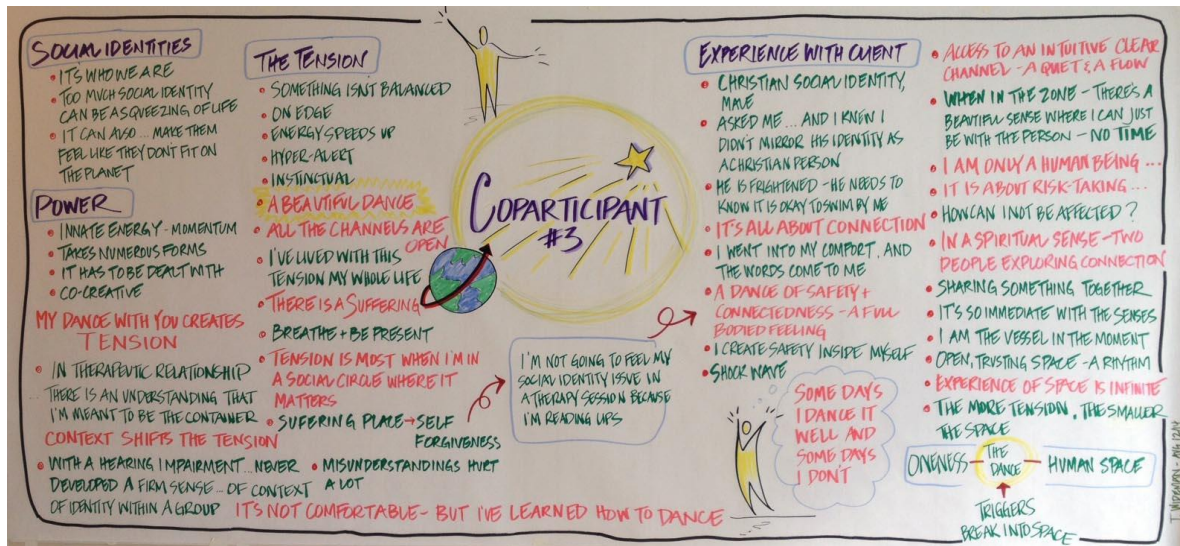 SOCIAL IDENTITIES
• IT'S WHO WE ARE
• TOO MUCH SOCIAL IDENTITY
CAN BE A SQUEEZING OF LIFE
• IT CAN ALSO... MAKE THEM
FEEL LIKE THEY DON'T FIT ON
THE PLANET
POWER
• INNATE ENERGY - MOMENTUM
• TAKES NUMEROUS FORMS
• IT HAS TO BE DEALT WITH
• CO-CREATIVE
MY DANCE WITH YOU CREATES
TENSION
• IN THERAPEUTIC RELATIONSHIP
THERE IS AN UNDERSTANDING THAT
I'M MEANT TO BE THE CONTAINER
CONTEXT SHIFTS THE TENSION
• WITH A HEARING IMPAIRMENT... NEVER
DEVELOPED A FIRM SENSE... OF CONTEXT
OF IDENTITY WITHIN A GROUP
THE TENSION
• SOMETHING ISN'T BALANCED
• ON EDGE
• ENERGY SPEEDS UP
• HYPER-ALERT
• INSTINCTUAL
• A BEAUTIFUL DANCE
• ALL THE CHANNELS ARE
OPEN
• I'VE LIVED WITH THIS
TENSION MY WHOLE LIFE
• THERE IS A SUFFERING
• BREATHE + BE PRESENT
• TENSION IS MOST WHEN I'M IN
A SOCIAL CIRCLE WHERE IT
MATTERS
• SUFFERING PLACE → SELF
FORGIVENESS
• MISUNDERSTANDINGS HURT
A LOT
IT'S NOT COMFORTABLE - BUT I'VE LEARNED HOW TO DANCE
COPARTICIPANT
#3
I'M NOT GOING TO FEEL MY
SOCIAL IDENTITY ISSUE IN
A THERAPY SESSION BECAUSE
I'M READING LIPS
EXPERIENCE WITH CLIENT
• CHRISTIAN SOCIAL IDENTITY,
MALE
• ASKED ME... AND I KNEW I
DIDN'T MIRROR HIS IDENTITY AS
A CHRISTIAN PERSON
• HE IS FRIGHTENED - HE NEEDS TO
KNOW IT IS OKAY TO SWIM BY ME
• IT'S ALL ABOUT CONNECTION
• I WENT INTO MY COMFORT, AND
THE WORDS COME TO ME
• A DANCE OF SAFETY +
CONNECTEDNESS - A FULL
BODIED FEELING
• I CREATE SAFETY INSIDE MYSELF
• SHOCK WAVE
SOME DAYS
I DANCE IT
WELL AND
SOME DAYS
I DON'T
• ACCESS TO AN INTUITIVE CLEAR
CHANNEL - A QUIET & A FLOW
• WHEN IN THE ZONE - THERE'S A
BEAUTIFUL SENSE WHERE I CAN JUST
BE WITH THE PERSON - NO TIME
• I AM ONLY A HUMAN BEING...
• IT IS ABOUT RISK-TAKING...
• HOW CAN I NOT BE AFFECTED?
• IN A SPIRITUAL SENSE - TWO
PEOPLE EXPLORING CONNECTION
• SHARING SOMETHING TOGETHER
• IT'S SO IMMEDIATE WITH THE SENSES
• I AM THE VESSEL IN THE MOMENT
• OPEN, TRUSTING SPACE - A RHYTHM
• EXPERIENCE OF SPACE IS INFINITE
• THE MORE TENSION, THE SMALLER
THE SPACE
ONENESS - THE DANCE - HUMAN SPACE
TRIGGERS
BREAK INTO SPACE